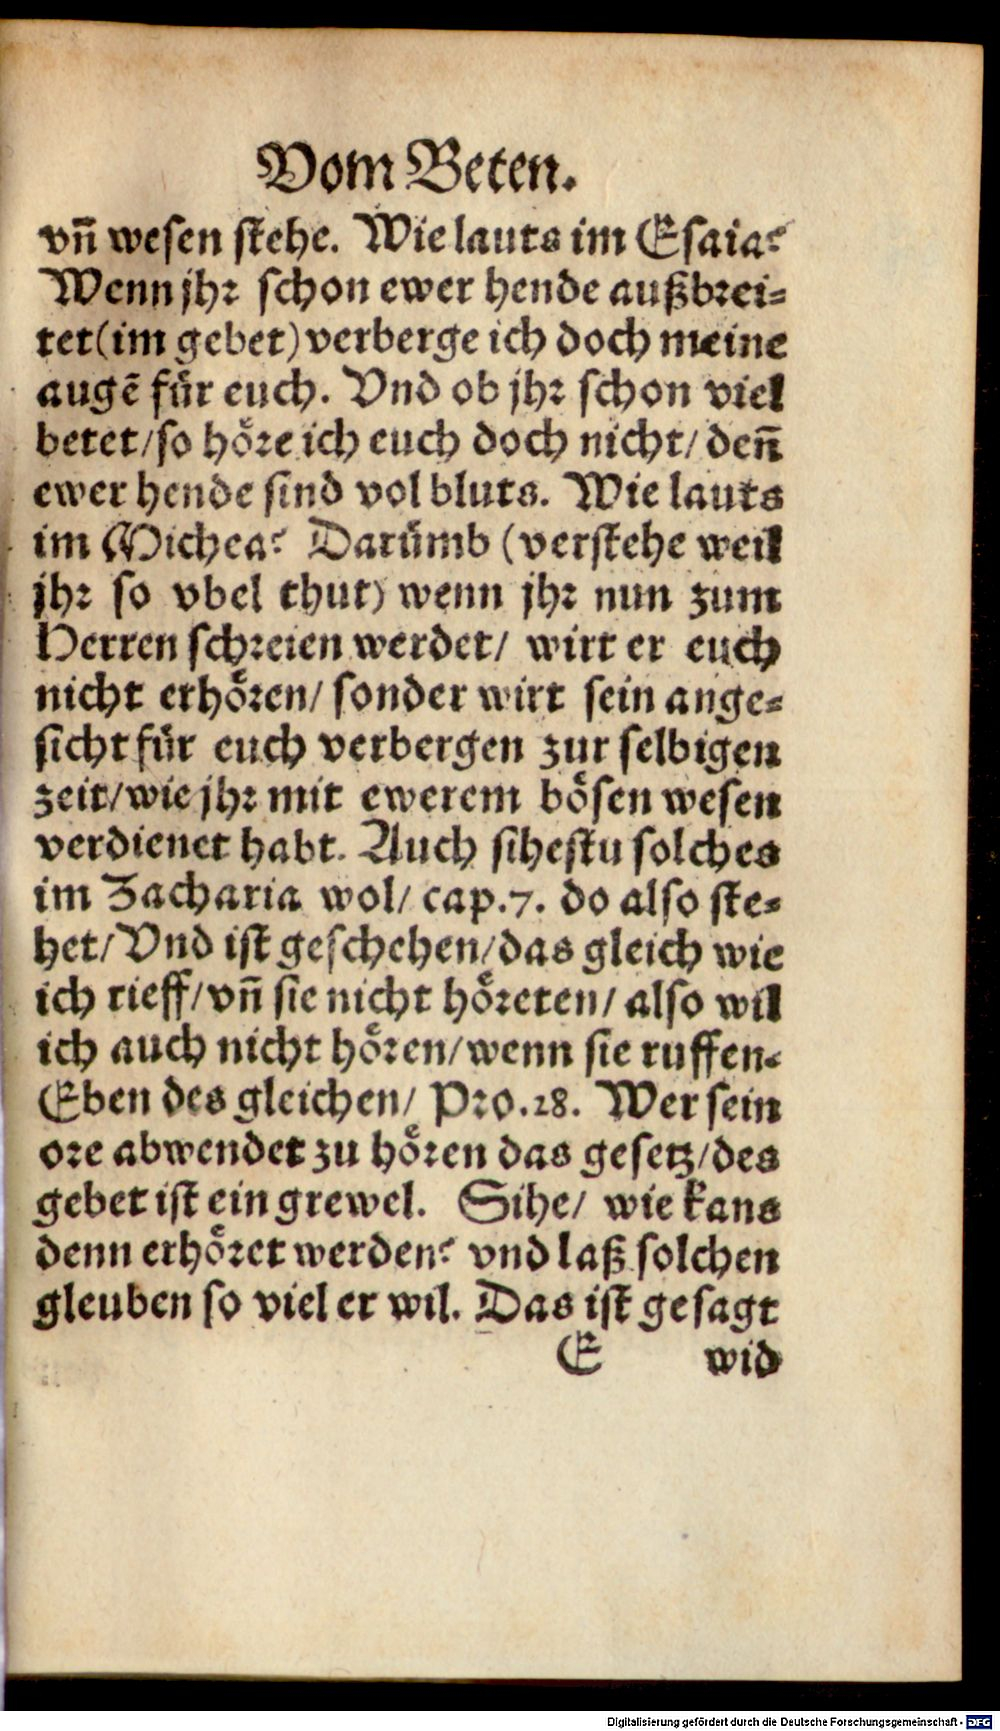 Vom Beten.
vñ wesen stehe. Wie lauts im Esaia?
Wenn jhr schon ewer hende außbrei-
tet(im gebet)verberge ich doch meine
augē für euch. Vnd ob jhr schon viel
betet/so höre ich euch doch nicht/ deñ
ewer hende sind vol bluts. Wie lauts
im Michea? Darümb (verstehe weil
jhr so vbel thut) wenn jhr nun zum
Herren schreien werdet/ wirt er euch
nicht erhören/ sonder wirt sein ange-
sicht für euch verbergen zur selbigen
zeit/wie jhr mit ewerem bösen wesen
verdienet habt. Auch sihestu solches
im Zacharia wol/ cap.7. do also ste-
het/Vnd ist geschehen/das gleich wie
ich rieff/vñ sie nicht höreten/ also wil
ich auch nicht hören/wenn sie ruffen.
Eben des gleichen/ Pro.28. Wer sein
ore abwendet zu hören das gesetz/des
gebet ist ein grewel. Sihe/ wie kans
denn erhöret werden? vnd laß solchen
gleuben so viel er wil. Das ist gesagt
E wid
Digitalisierung gefördert durch die Deutsche Forschungsgemeinschaft - DFG